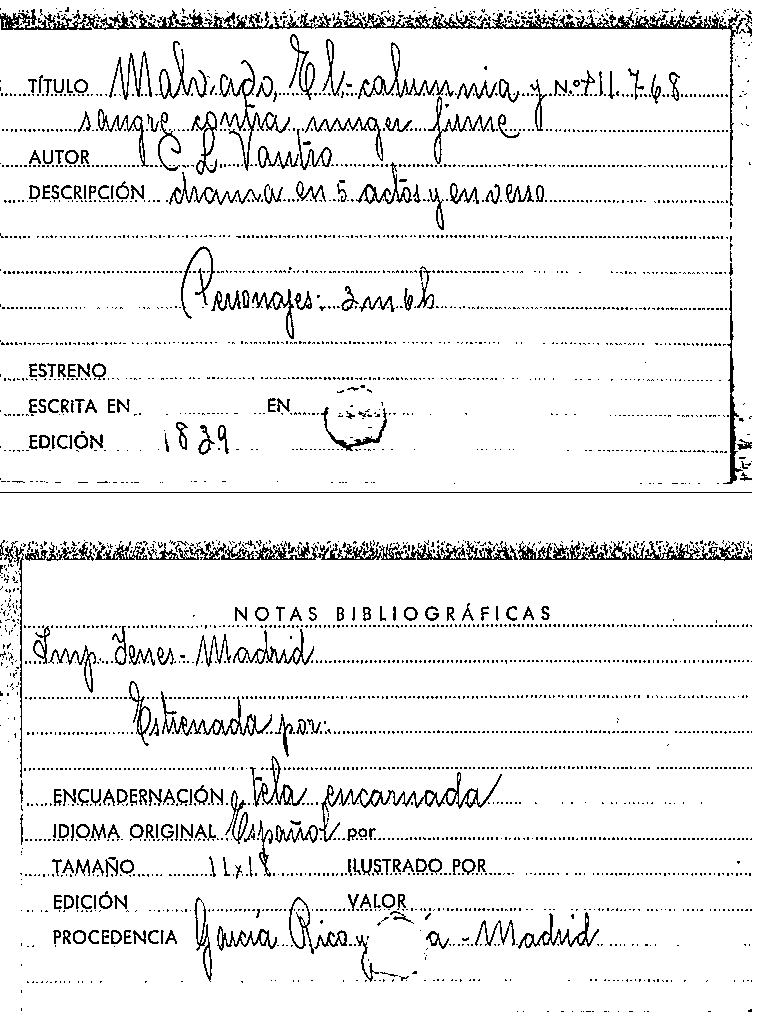 TÍTULO Malvado, El.- calumnia y N.º P11.768
sangre contra muger firme
AUTOR C L. Vautro
DESCRIPCIÓN drama en 5 actos y en verso
Personajes: 3 m 6 h
ESTRENO
ESCRITA EN EN
EDICIÓN 1839
NOTAS BIBLIOGRÁFICAS
Imp Yenes - Madrid
Estrenada por:
ENCUADERNACIÓN tela encarnada
IDIOMA ORIGINAL Español por
TAMAÑO 11x18 ILUSTRADO POR
EDICIÓN VALOR
PROCEDENCIA García Rico y a - Madrid